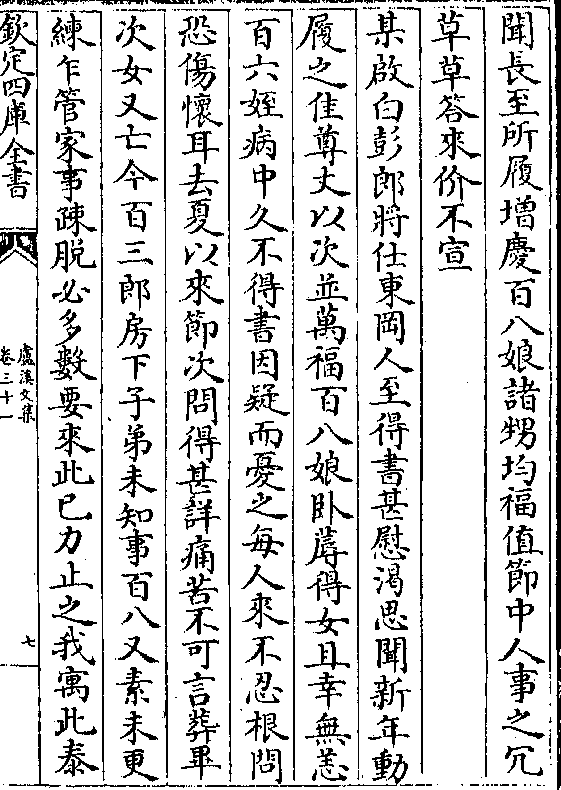 聞長至所履增慶百八娘諸甥均福值節中人事之冗
草草答來价不宣
某啟白彭郎將仕東岡人至得書甚慰渴思聞新年動
履之佳尊丈以次並萬福百八娘卧蓐得女且幸無恙
百六姪病中久不得書因疑而憂之每人來不忍根問
恐傷懷耳去夏以來節次問得甚詳痛苦不可言葬畢
次女又亡今百三郎房下子弟未知事百八又素未更
練乍管家事疎脱必多數要來此已力止之我寓此泰
欽定四庫全書
盧溪文集
卷三十一
七